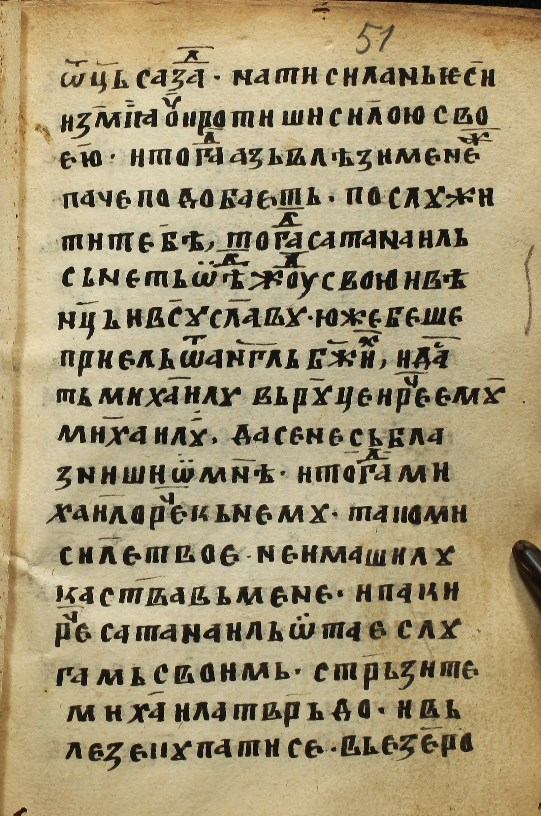 51
ѿць саза̑д · на ти сила нь ѥси
измига очи противши силою сво
ею · и тогда азь влѣзи мене
паче подобаеть · послѹжи
ти тебѣ, тогда сатанаиль
сьнеть ѡдеждоу свою и вѣ
нць и всу славѹ · юже беше
приель ѿ англь бжи, и да
ть михаилѹ вь рѹце и рече емѹ
михаилѹ, да се не сьбла
зниши ѿ мне · и тогда ми
хаило рече кь немѹ · та помн
си лет вое · не имаши лѹ
каства вь мене · и паки
рече сатанаиль ѿтае слѹ
гамь своимь · стрьзите
михаила тврьдо · и вь
лезе кѹпати се · вь езеро